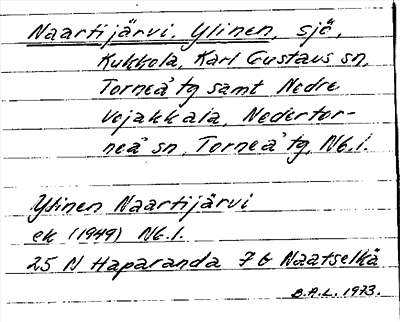 Naartijärvi, Ylinen, sjö,
Kukkola, Karl Gustavs sn,
Torneå tg samt Nedre
Vojakkala, Nedertor-
neå sn, Torneå tg, Nb.l.
Ylinen Naartijärvi
ek (1949) Nb.l.
25 N Haparanda 7 G Naatselkä
B.A.L. 1973.